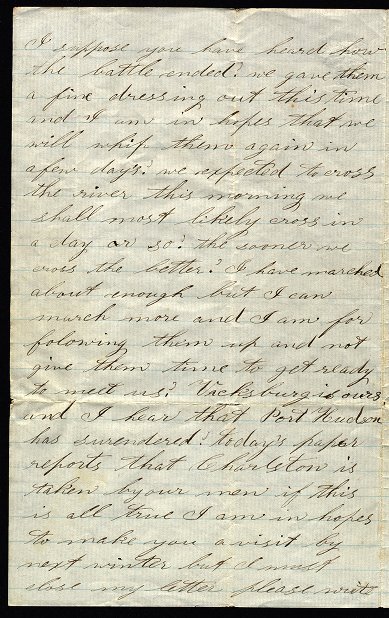 I suppose you have heard how
the battle ended? we gave them
a fine dressing out this time
and I am in hopes that we
will whip them again in
a few days? we expected to cross
the river this morning we
shall most likely cross in
a day or so? the sooner we
cross the better? I have marched
about enough but I can
march more and I am for
folowing them up and not
give them time to get ready
to meet us? Vicksburg is ours
and I hear that Port Hudson
has surendered? today's paper
reports that Charlston is
taken by our men if this
is all true I am in hopes
to make you a visit by
next winter but I must
close my letter please write